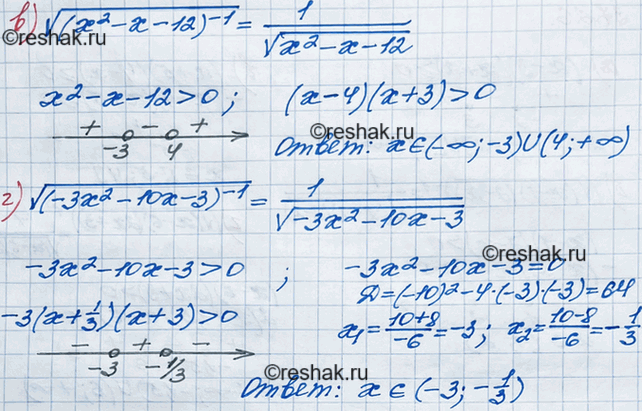 в) √((x²-x-12)⁻¹) = 1/√(x²-x-12)
©reshak.ru
x²-x-12>0; (x-4)(x+3)>0
+ - +
-3 4
©reshak.ru
Ответ: x∈(-∞;-3)∪(4;+∞)
г) √((-3x²-10x-3)⁻¹) = 1/√(-3x²-10x-3)
©reshak.ru
-3x²-10x-3>0; -3x²-10x-3=0
©reshak.ru
Д=(-10)²-4·(-3)·(-3)=64
-3(x+1/3)(x+3)>0
x₁=(10+8)/-6=-3; x₂=(10-8)/-6=-1/3
- + -
-3 -1/3
©reshak.ru
Ответ: x∈(-3;-1/3)